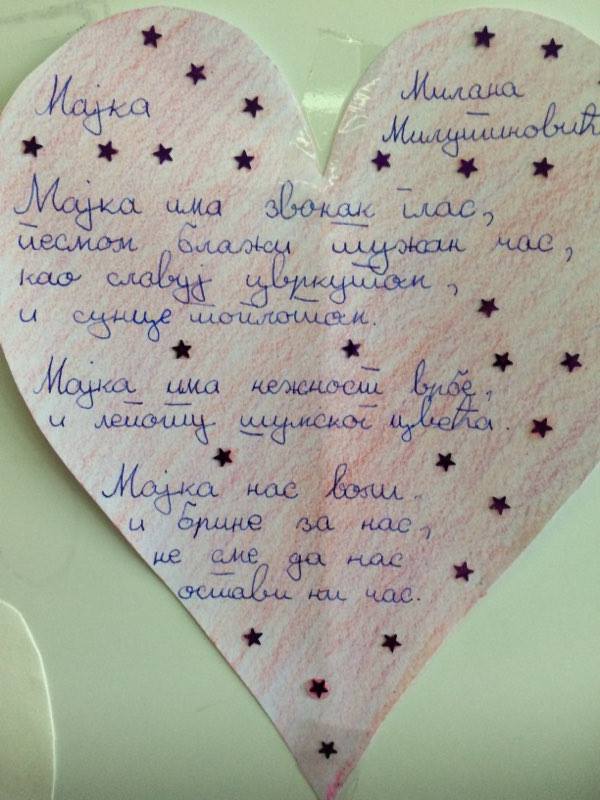 Мајка
Милана
Милутиновић
Мајка има звонак глас,
песмом блажи тужан час,
као славуј цвркутом,
и сунце топлотом.
Мајка има нежност врбе,
и лепоту шумског цвећа.
Мајка нас воли
и брине за нас,
не сме да нас
остави ни час.